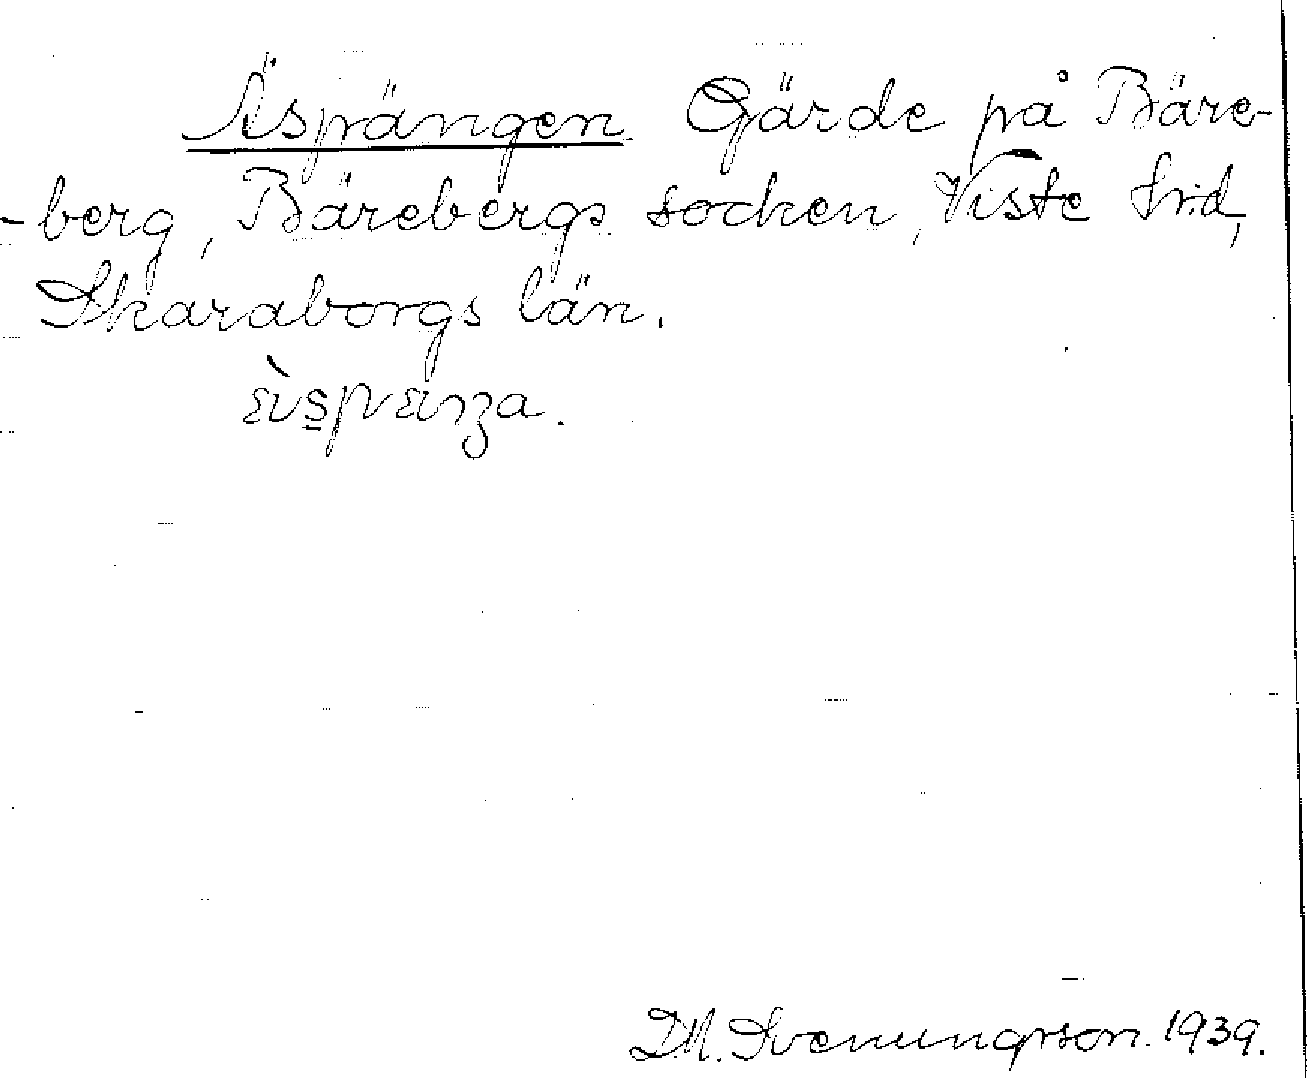 Äspängen Gärde på Bäre-
-berg, Bärebergs socken, Viste hrd,
Skaraborgs län.
D.M. Svenungsson. 1939.